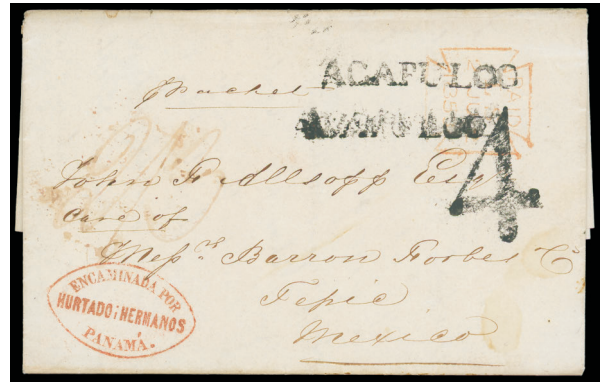 ACAPULCO
Packet
ACAPULCO
John F. Allsopp Esqr
care of
Messrs Barron Forbes Co
4
Tepic
Mexico
ENCAMINADA POR
HURTADO Y HERMANOS
PANAMÁ.